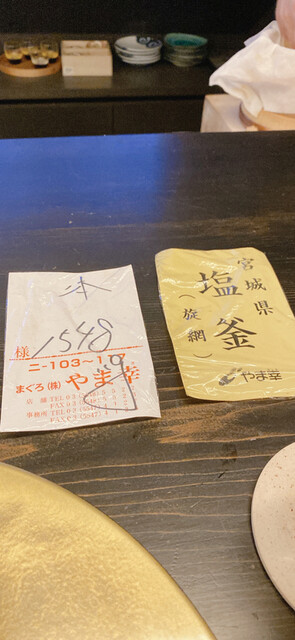 本
様
1548
ニ-103~1
まぐろ(株) やま幸
店舗 TEL 03
FAX 03
事務所 TEL 03
FAX 03
宮城県
塩釜
(旋網)
やま幸